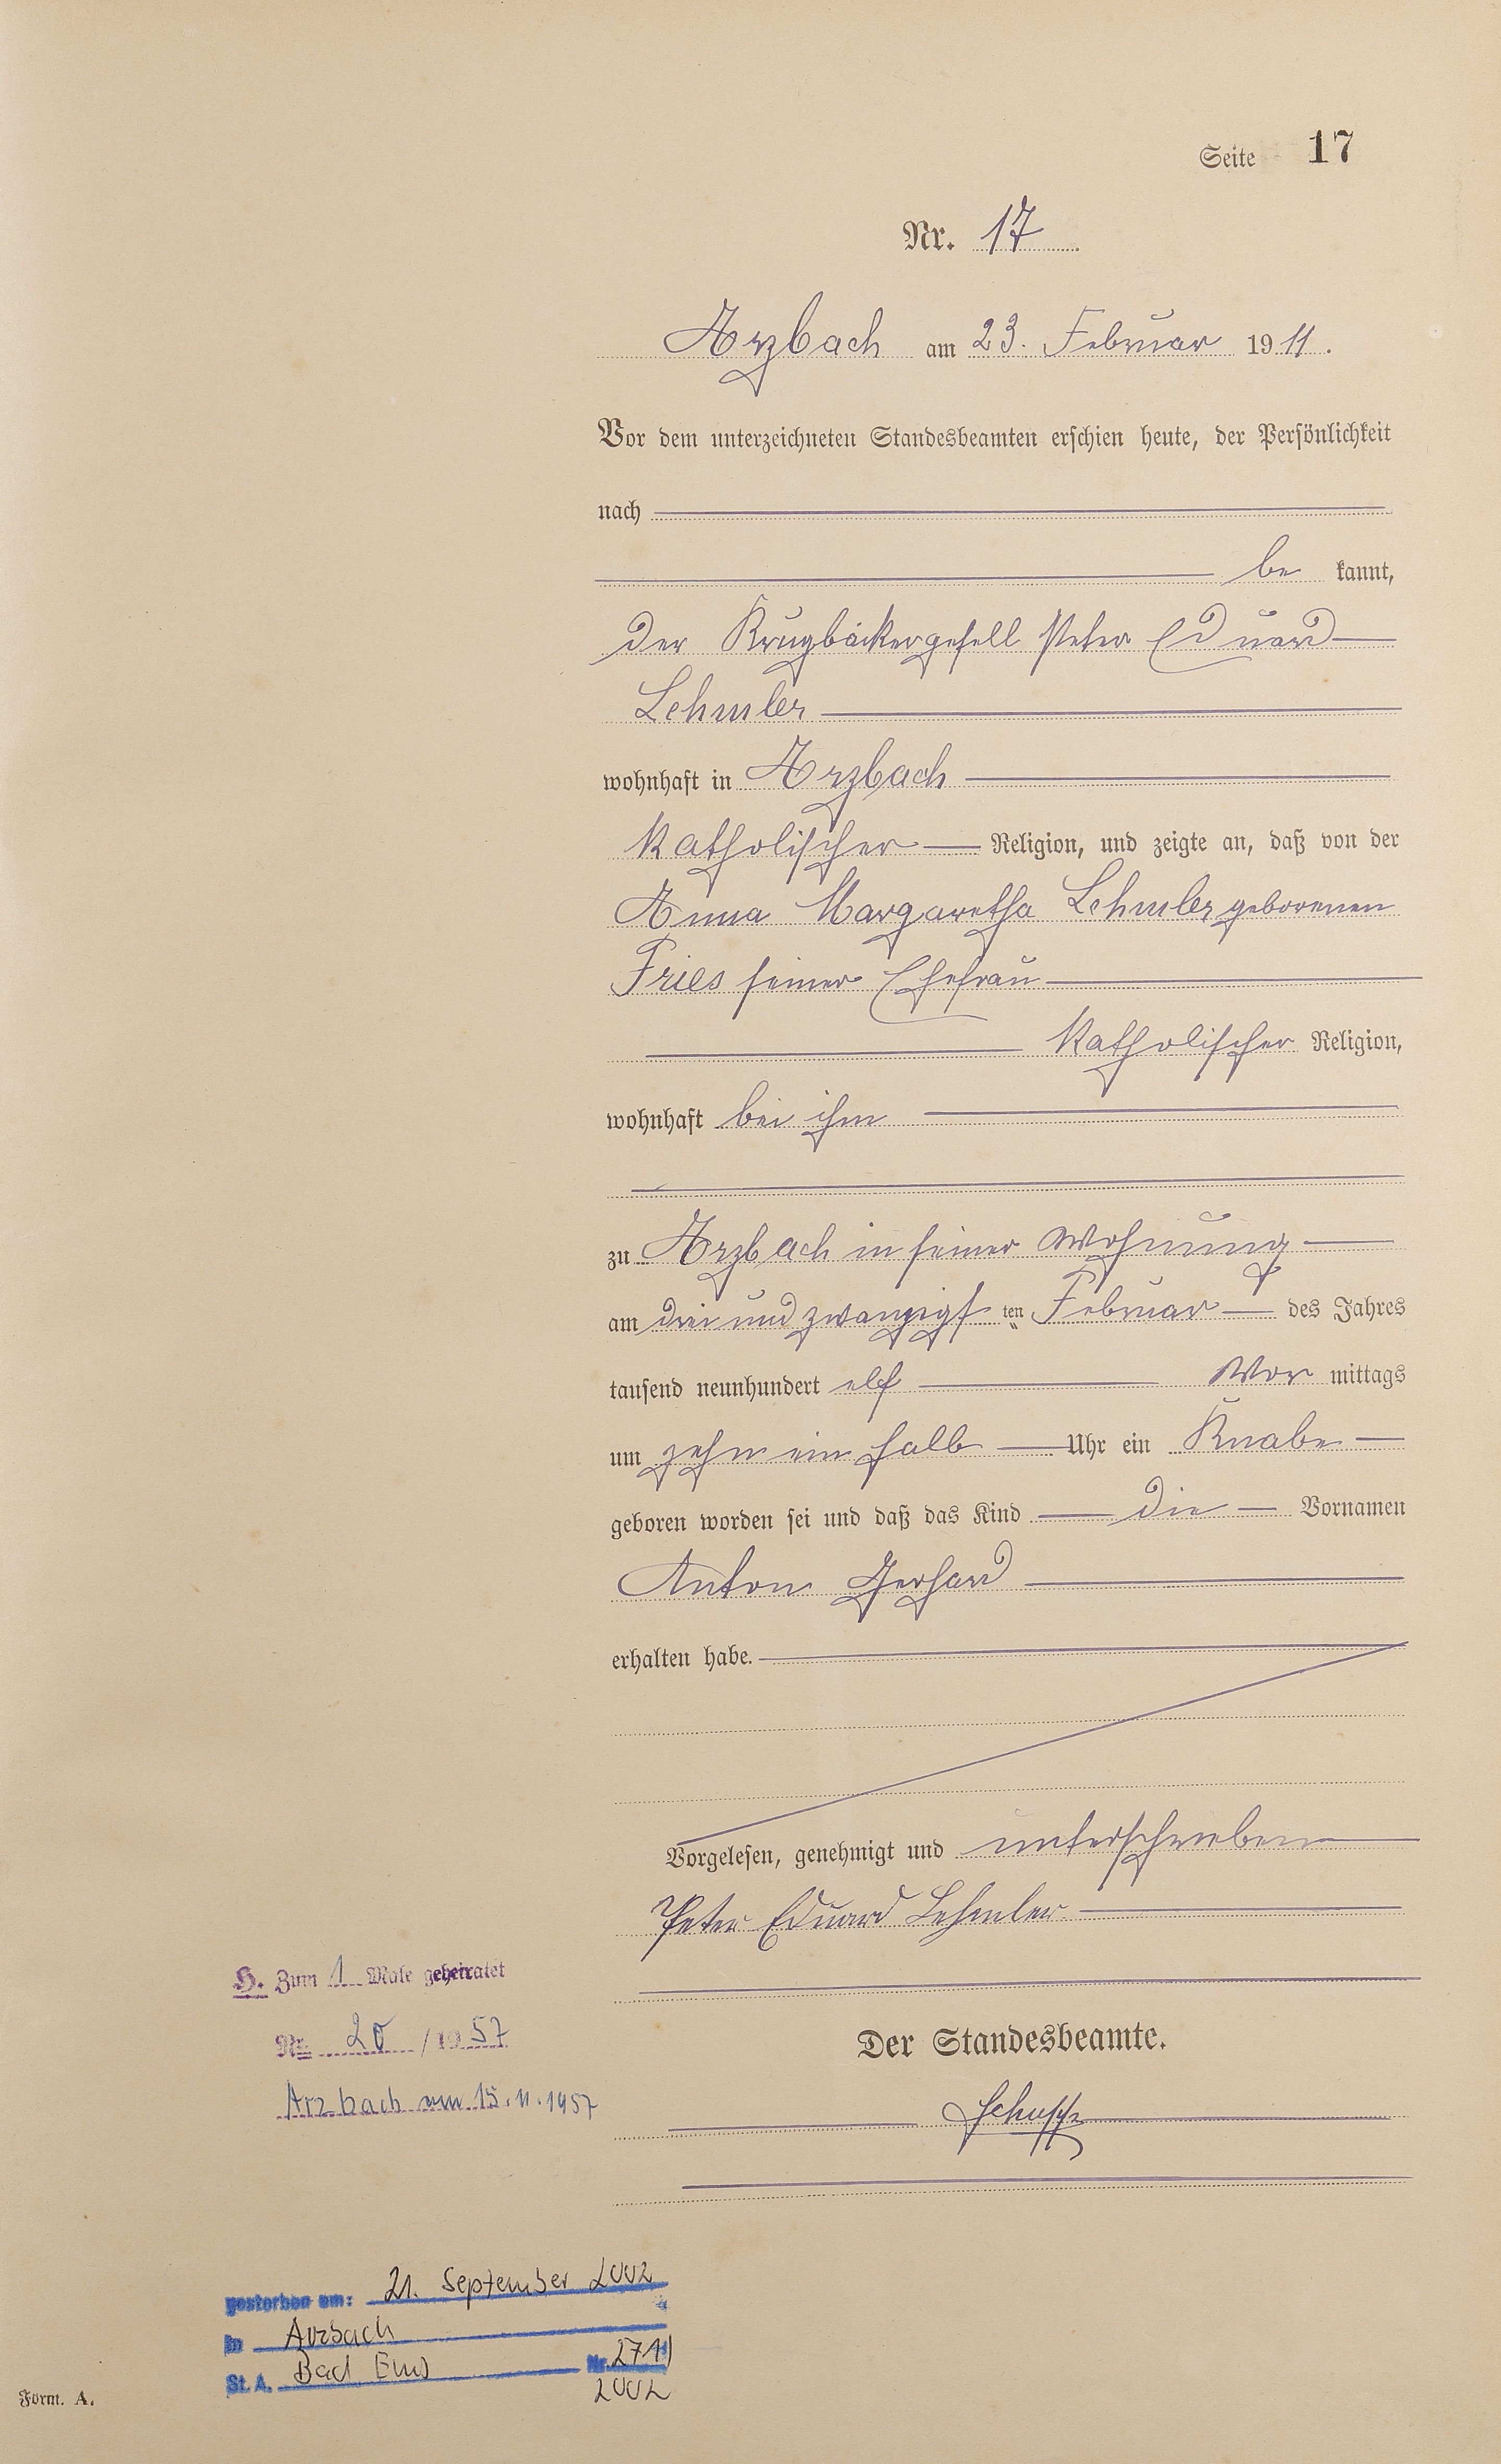 Seite 17
Nr. 17
Arzbach am 23. Februar 1911.
Vor dem unterzeichneten Standesbeamten erschien heute, der Persönlichkeit
nach
be kannt,
der Krugbäckergesell Peter Eduard
Lehmler
wohnhaft in Arzbach
katholischer Religion, und zeigte an, daß von der
Anna Margaretha Lehmler geborenen
Fries seiner Ehefrau
katholischer Religion,
wohnhaft bei ihm
zu Arzbach in seiner Wohnung
am drei und zwanzigsten Februar des Jahres
tausend neunhundert elf Vor mittags
um zehn ein halb Uhr ein Knabe
geboren worden sei und daß das Kind die Vornamen
Anton Gerhard
erhalten habe.
Vorgelesen, genehmigt und unterschrieben
Peter Eduard Lehmler
Der Standesbeamte.
H. Zum 1 Male geheiratet
Nr. 20 / 1957
Arzbach am 15.11.1957
gestorben am: 21. September 2002
in Arzbach
St. A. Bad Ems Nr. 271/
2002
Form. A.